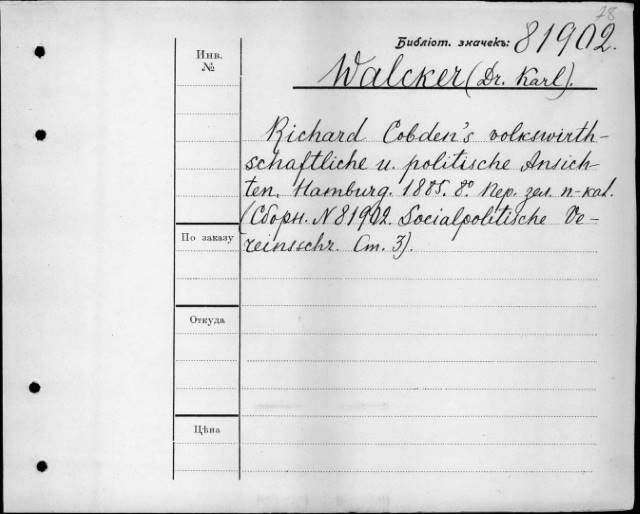 78
Библіот. значекъ: 81902.
Инв.
№
Walcker (Dr. Karl).
Richard Cobden's volkswirth-
schaftliche u. politische Ansich-
ten, Hamburg. 1885. 8° Пер. зел. п-кал.
(Сборн. N 81902. Socialpolitische Ve-
По заказу
reinsschr. Ст. 3).
Откуда
Цѣна